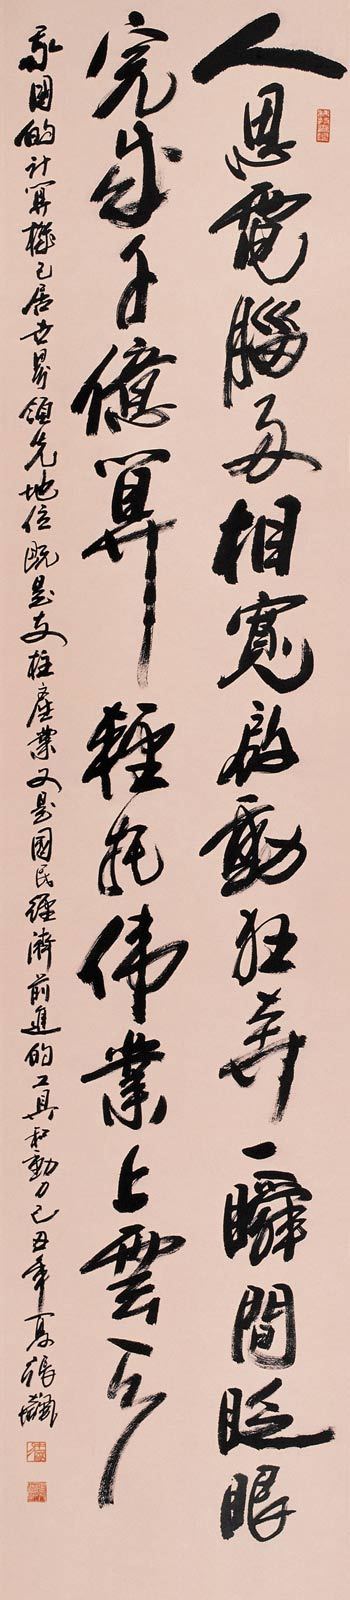 人思電腦相寬啟動狂奔一瞬間眨眼
完成千億算輕托伟業上雲天
我国的计算機已居世界領先地位既是支柱產業又是國民經濟前進的工具和動力己丑年夏張飆